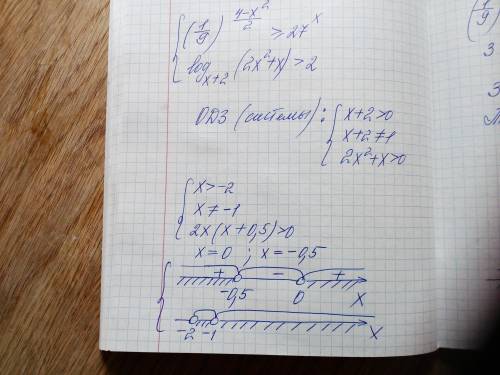 { (1/9)^((4-x²)/2) ≥ 27^x
{ log_{x+2} (2x²+x) > 2
ОДЗ (системы): { x+2>0
x+2≠1
2x²+x>0
{ x>-2
x≠-1
2x(x+0,5)>0
x=0 ; x=-0,5
+ - +
-0,5 0 x
-2 -1 x
(1/9)
3
3